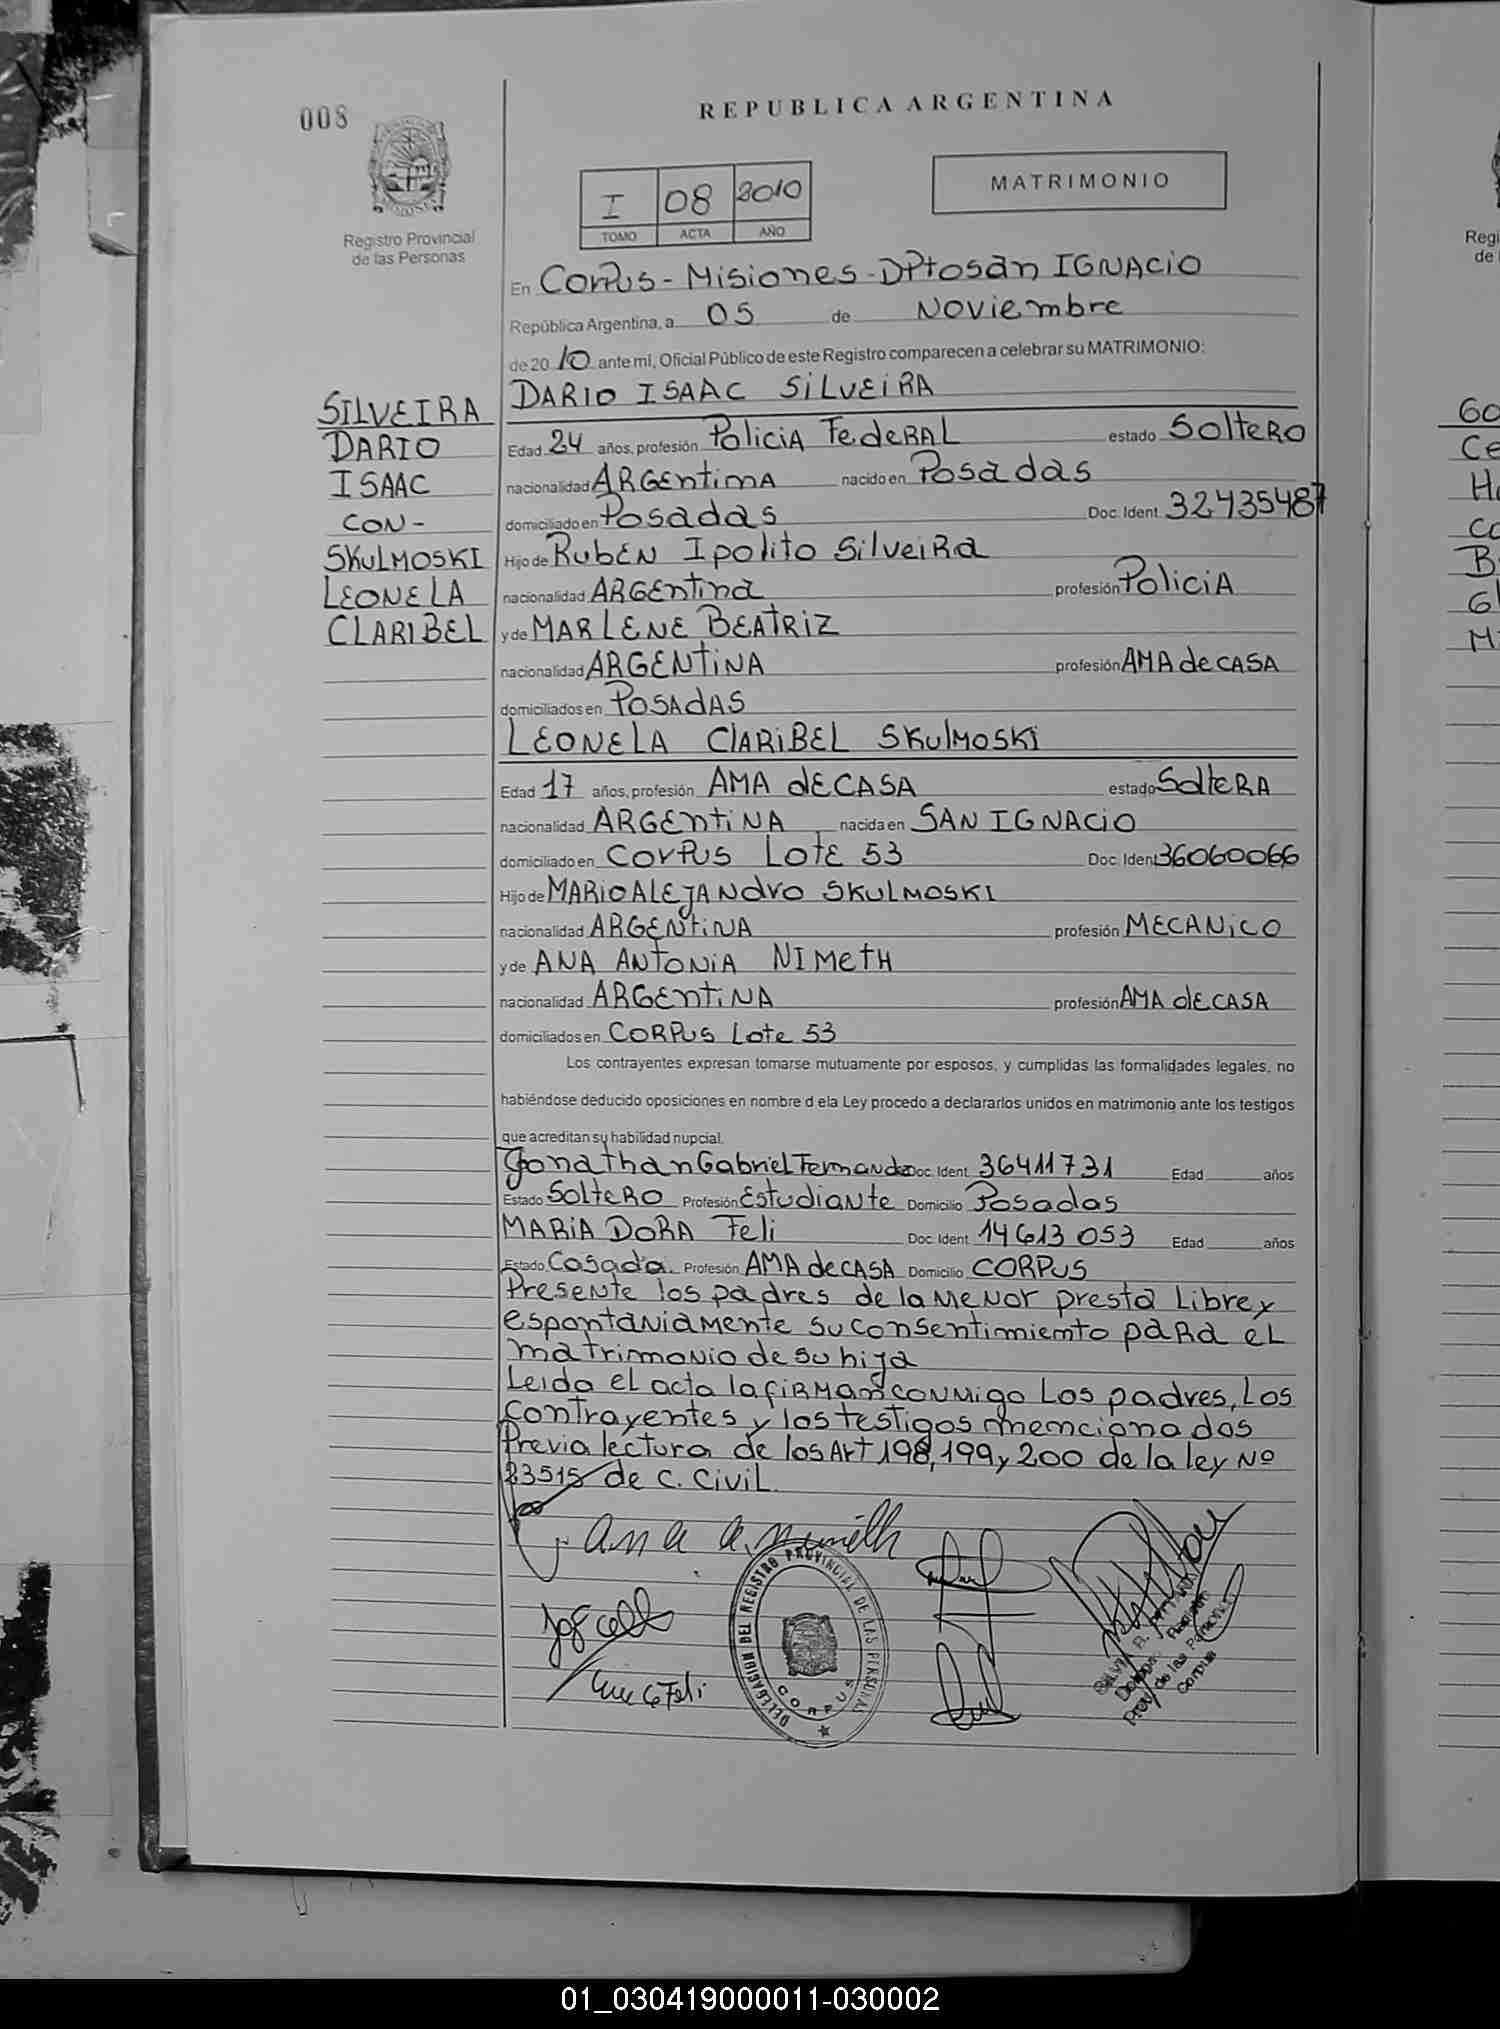 008
REPUBLICA ARGENTINA
MATRIMONIO
I 08 2010
TOMO ACTA AÑO
Registro Provincial
de las Personas
En Corpus - Misiones - DPto San IGNACIO
República Argentina, a 05 de Noviembre
de 20 10 ante mi, Oficial Público de este Registro comparecen a celebrar su MATRIMONIO:
SILVEIRA
DARIO
ISAAC
CON -
SKULMOSKI
LEONELA
CLARIBEL
DARIO ISAAC SILVEIRA
Edad 24 años, profesión Policia Federal estado Soltero
nacionalidad ARGEntinA nacido en Posadas
domiciliado en Posadas Doc. Ident. 32435487
Hijo de Ruben Ipolito Silveira
nacionalidad ARGEntina profesión Policia
y de MARLENE BEATRIZ
nacionalidad ARGENtiNA profesión AMA de CASA
domiciliados en POSAdAS
LEONELA ClARiBEL SKulMOSKi
Edad 17 años, profesión AMA dE CASA estado SolteRA
nacionalidad ARGEntiNA nacida en SAN IGNACiO
domiciliado en CORPUS Lote 53 Doc. Ident 36060066
Hijo de MARiO ALEJANdro SKULMOSKI
nacionalidad ARGENtiNA profesión MECANiCO
y de ANA ANTONiA NIMetH
nacionalidad ARGEntiNA profesión AMA dE CASA
domiciliados en CORPUS Lote 53
Los contrayentes expresan tomarse mutuamente por esposos, y cumplidas las formalidades legales, no
habiéndose deducido oposiciones en nombre d ela Ley procedo a declararlos unidos en matrimonio ante los testigos
que acreditan su habilidad nupcial.
Jonathan Gabriel Fernandez Doc. Ident. 36411731 Edad años
Estado Soltero Profesión Estudiante Domicilio Posadas
MARiA DORA Feli Doc. Ident. 14613053 Edad años
Estado Casada. Profesión AMA de CASA Domicilio CORPUS
Presente los padres de la menor presta Libre y
espontaniamente su consentimiento para el
matrimonio de su hija
Leida el acta la firman conmigo Los padres, Los
contrayentes y los testigos mencionados
Previa lectura de los Art 198, 199 y 200 de la ley Nº
23515 de C. Civil.
Ana A. Nimeth
DELEGACION DEL REGISTRO PROVINCIAL DE LAS PERSONAS
CORPUS
Prov. de las Personas
Corpus
Regi
de l
Go
Ce
Co
B
Gl
M
01_030419000011-030002